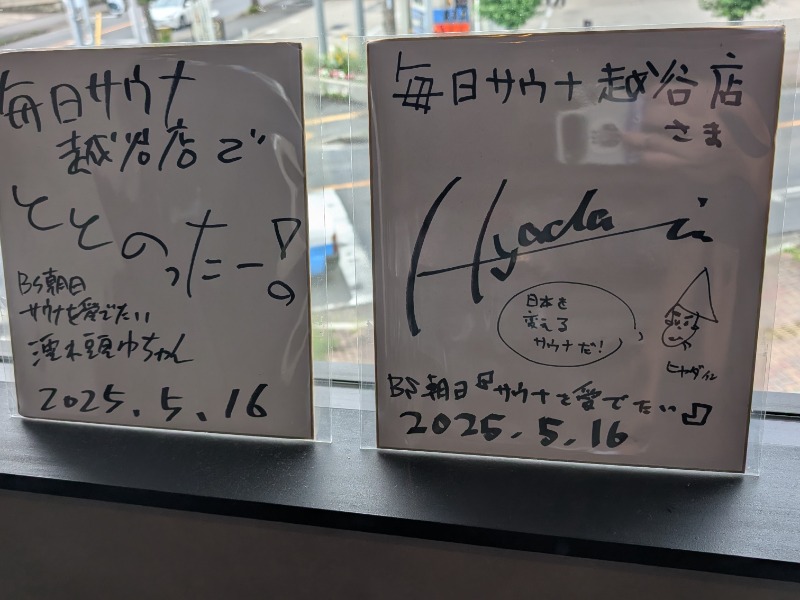 毎日サウナ
越谷店で
ととのったー!
BS朝日
サウナを愛でたい
濡れ頭巾ちゃん
2025.5.16
毎日サウナ 越谷店
さま
Hyadain
日本を
変える
サウナだ!
ヒャダイン
BS朝日『サウナを愛でたい』
2025.5.16